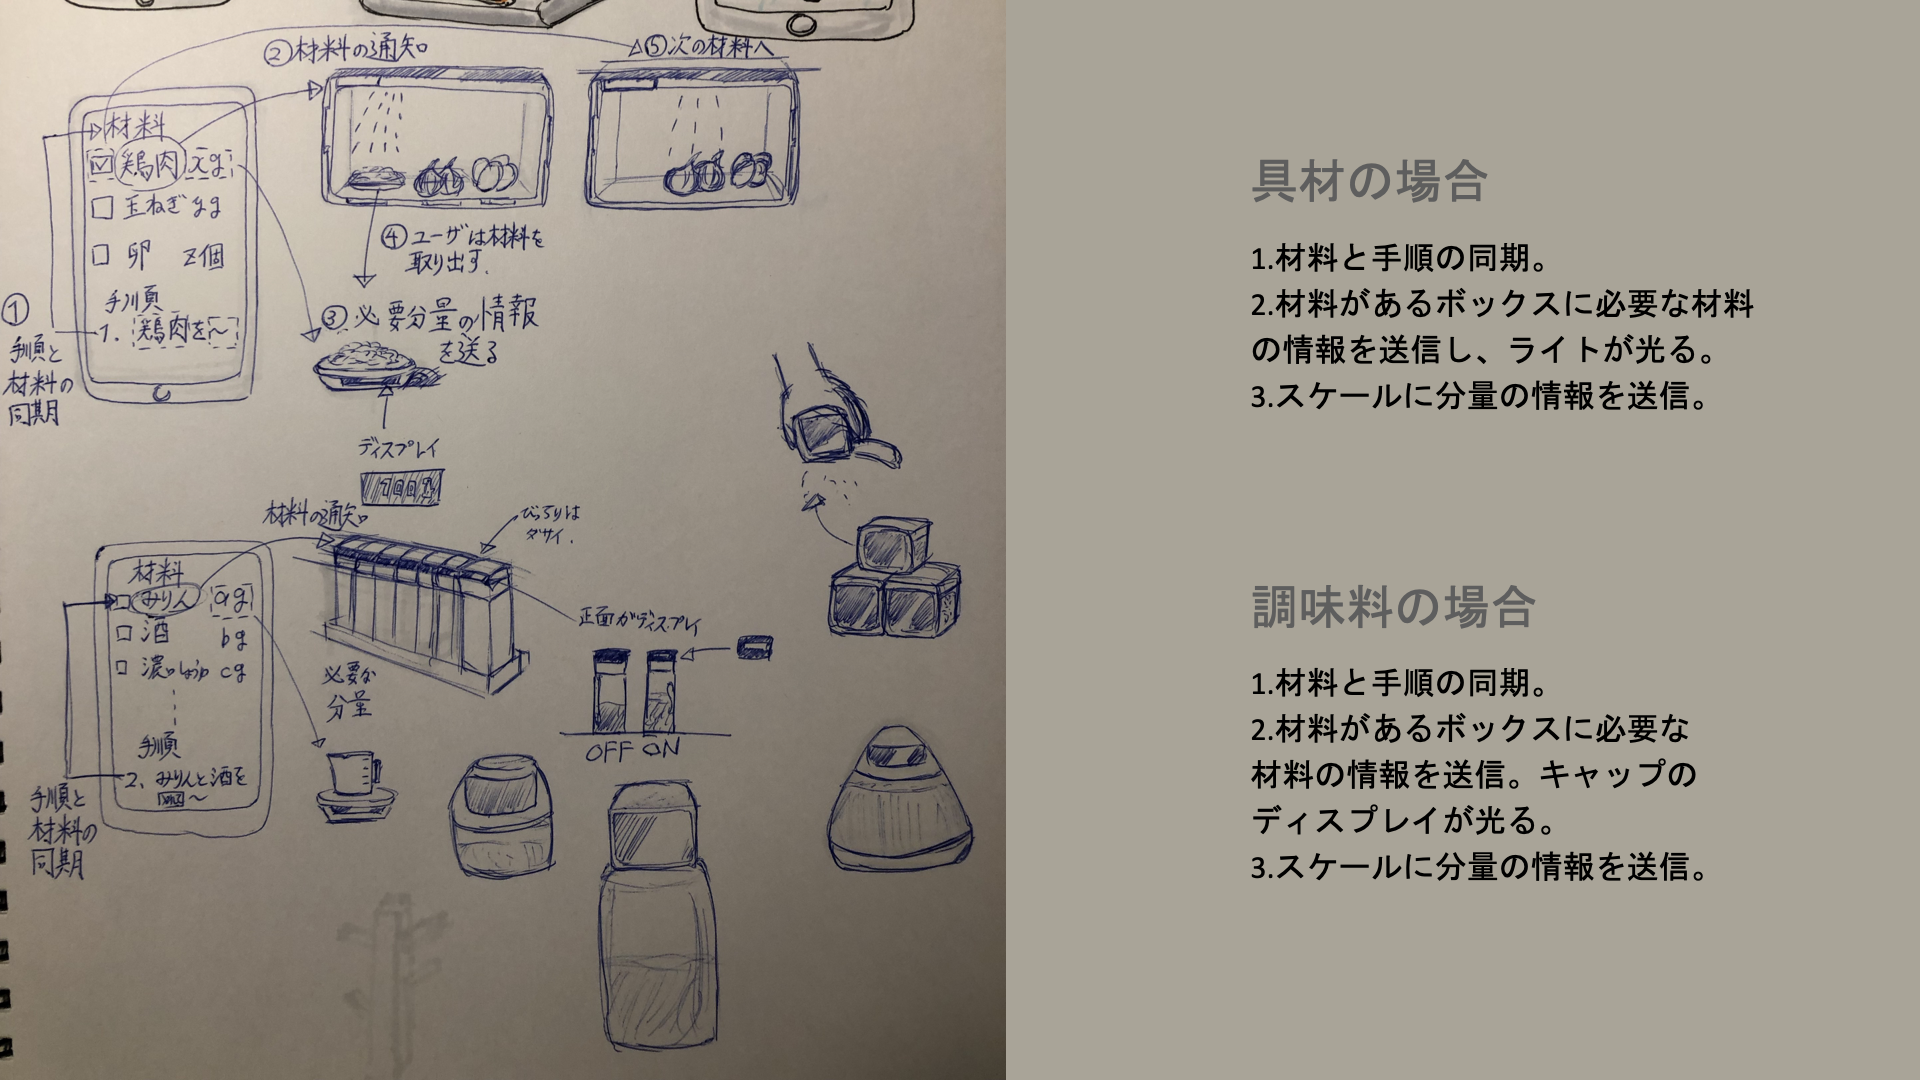 ②材料の通知
⑤次の材料へ
材料
鶏肉 xg
玉ねぎ yg
卵 z個
手順
1. 鶏肉を〜
①
手順と
材料の
同期
④ユーザは材料を
取り出す.
③必要分量の情報
を送る
ディスプレイ
材料の通知
びっちりは
ダサイ.
材料
みりん ag
酒 bg
濃口しょうゆ cg
手順
2. みりんと酒を
〜
手順と
材料の
同期
必要な
分量
正面がディスプレイ
OFF ON
具材の場合
1.材料と手順の同期。
2.材料があるボックスに必要な材料
の情報を送信し、ライトが光る。
3.スケールに分量の情報を送信。
調味料の場合
1.材料と手順の同期。
2.材料があるボックスに必要な
材料の情報を送信。キャップの
ディスプレイが光る。
3.スケールに分量の情報を送信。